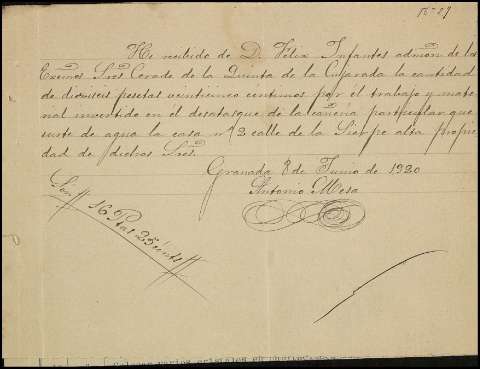 He recibido de D. Félix Infantes admon de los
Exmos Sres de la Quinta de la la cantidad
de dieciseis pesetas veinticinco centimos por el trabajo y mate
rial invertido en el desatasque de la cañeria particular que
surte de agua la casa nº 2 calle de la Sierpe alta propie
dad de dichos Sres.
Granada 8 de Junio de 1920
Antonio Mesa
Son 16 Ptas 25 cents